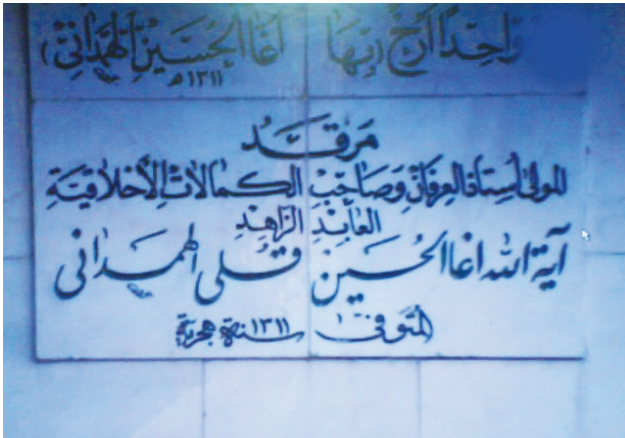 واحداً أرخ (بها آغا الحسين الهمداني)
١٣١١ هـ
مَرقَد
المولى أستاذ العرفان وَصَاحِب الكمالات الأخلاقية
العابد الزاهد
آية الله اغا الحُسين قُلي الهمداني
المتوفى ١٣١١ سنة هجرية